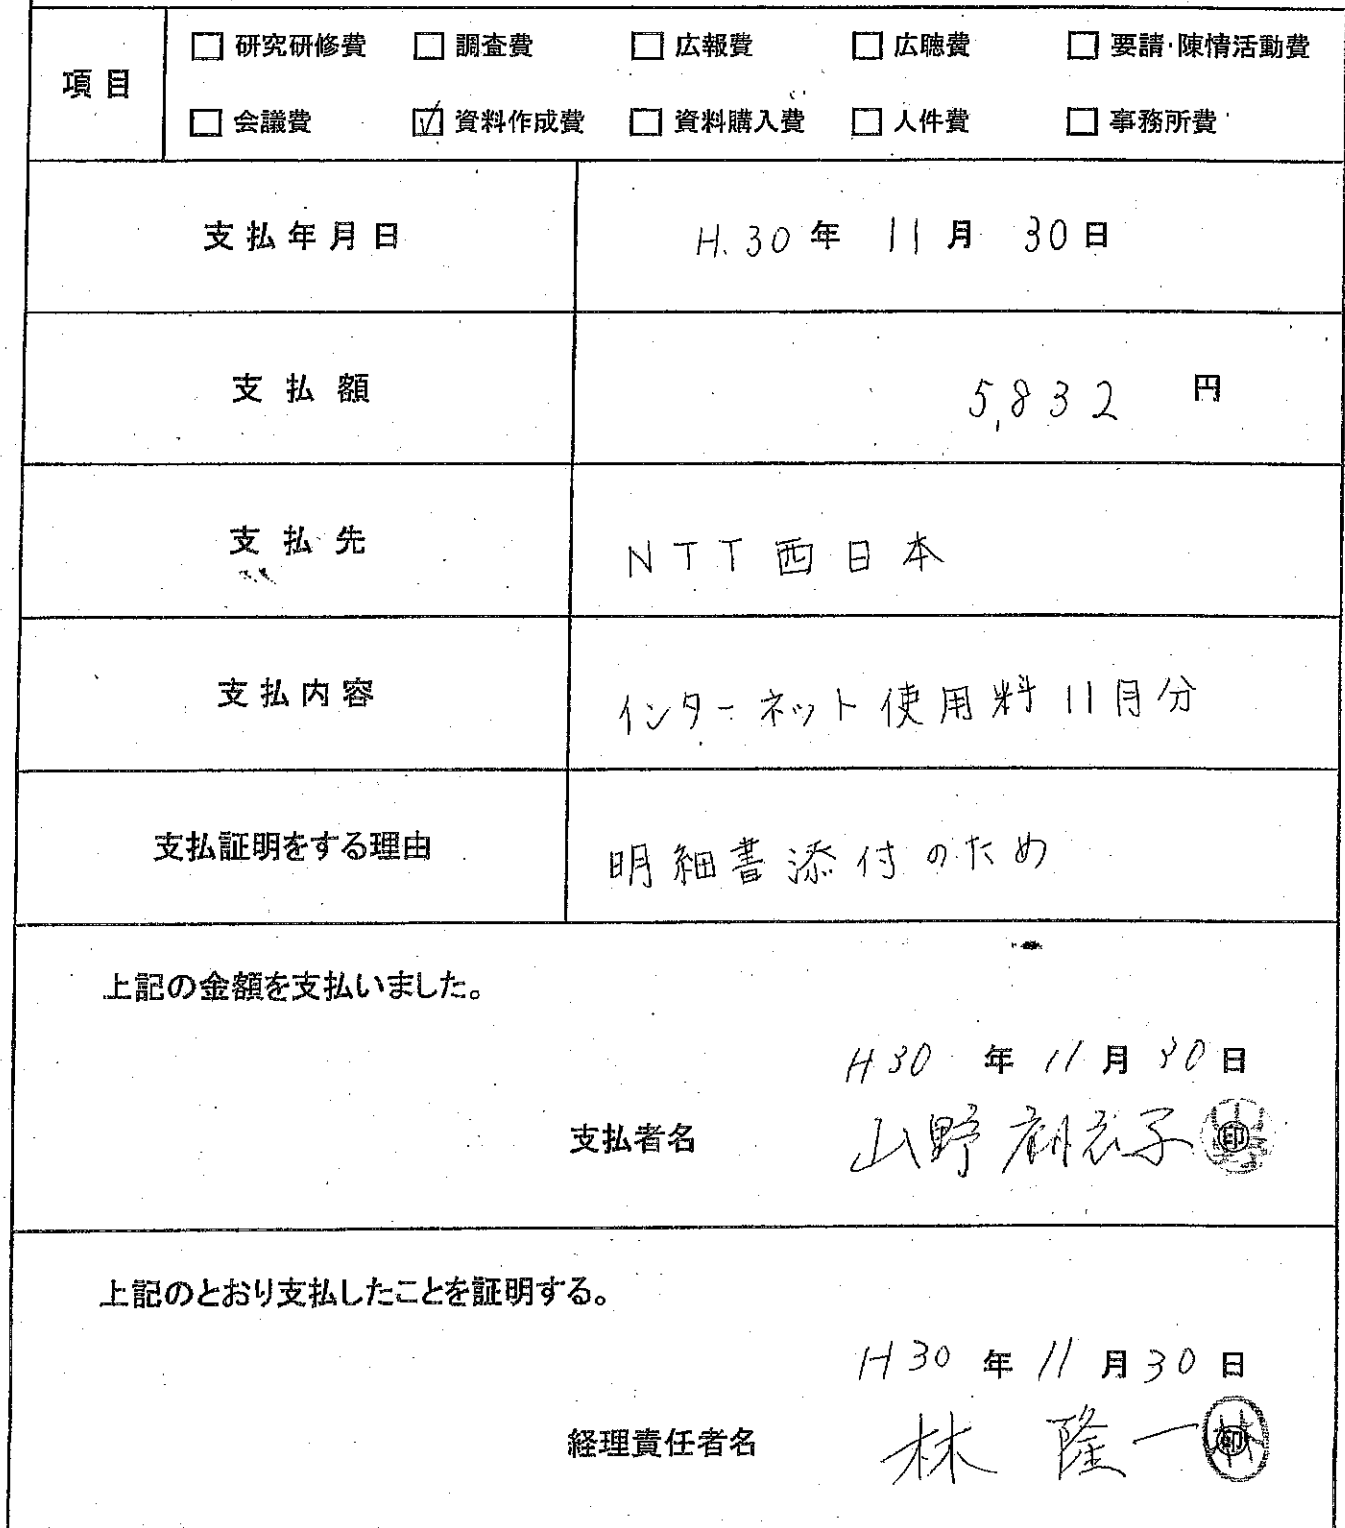 項目
□ 研究研修費 □ 調査費 □ 広報費 □ 広聴費 □ 要請・陳情活動費
□ 会議費 ☑ 資料作成費 □ 資料購入費 □ 人件費 □ 事務所費
支払年月日 H.30年 11月 30日
支払額 5,832 円
支払先 NTT西日本
支払内容 インターネット使用料11月分
支払証明をする理由 明細書添付のため
上記の金額を支払いました。
H30 年 11月 30日
支払者名 山野 衣子 印
上記のとおり支払したことを証明する。
H30 年 11月30日
経理責任者名 林 隆一 印